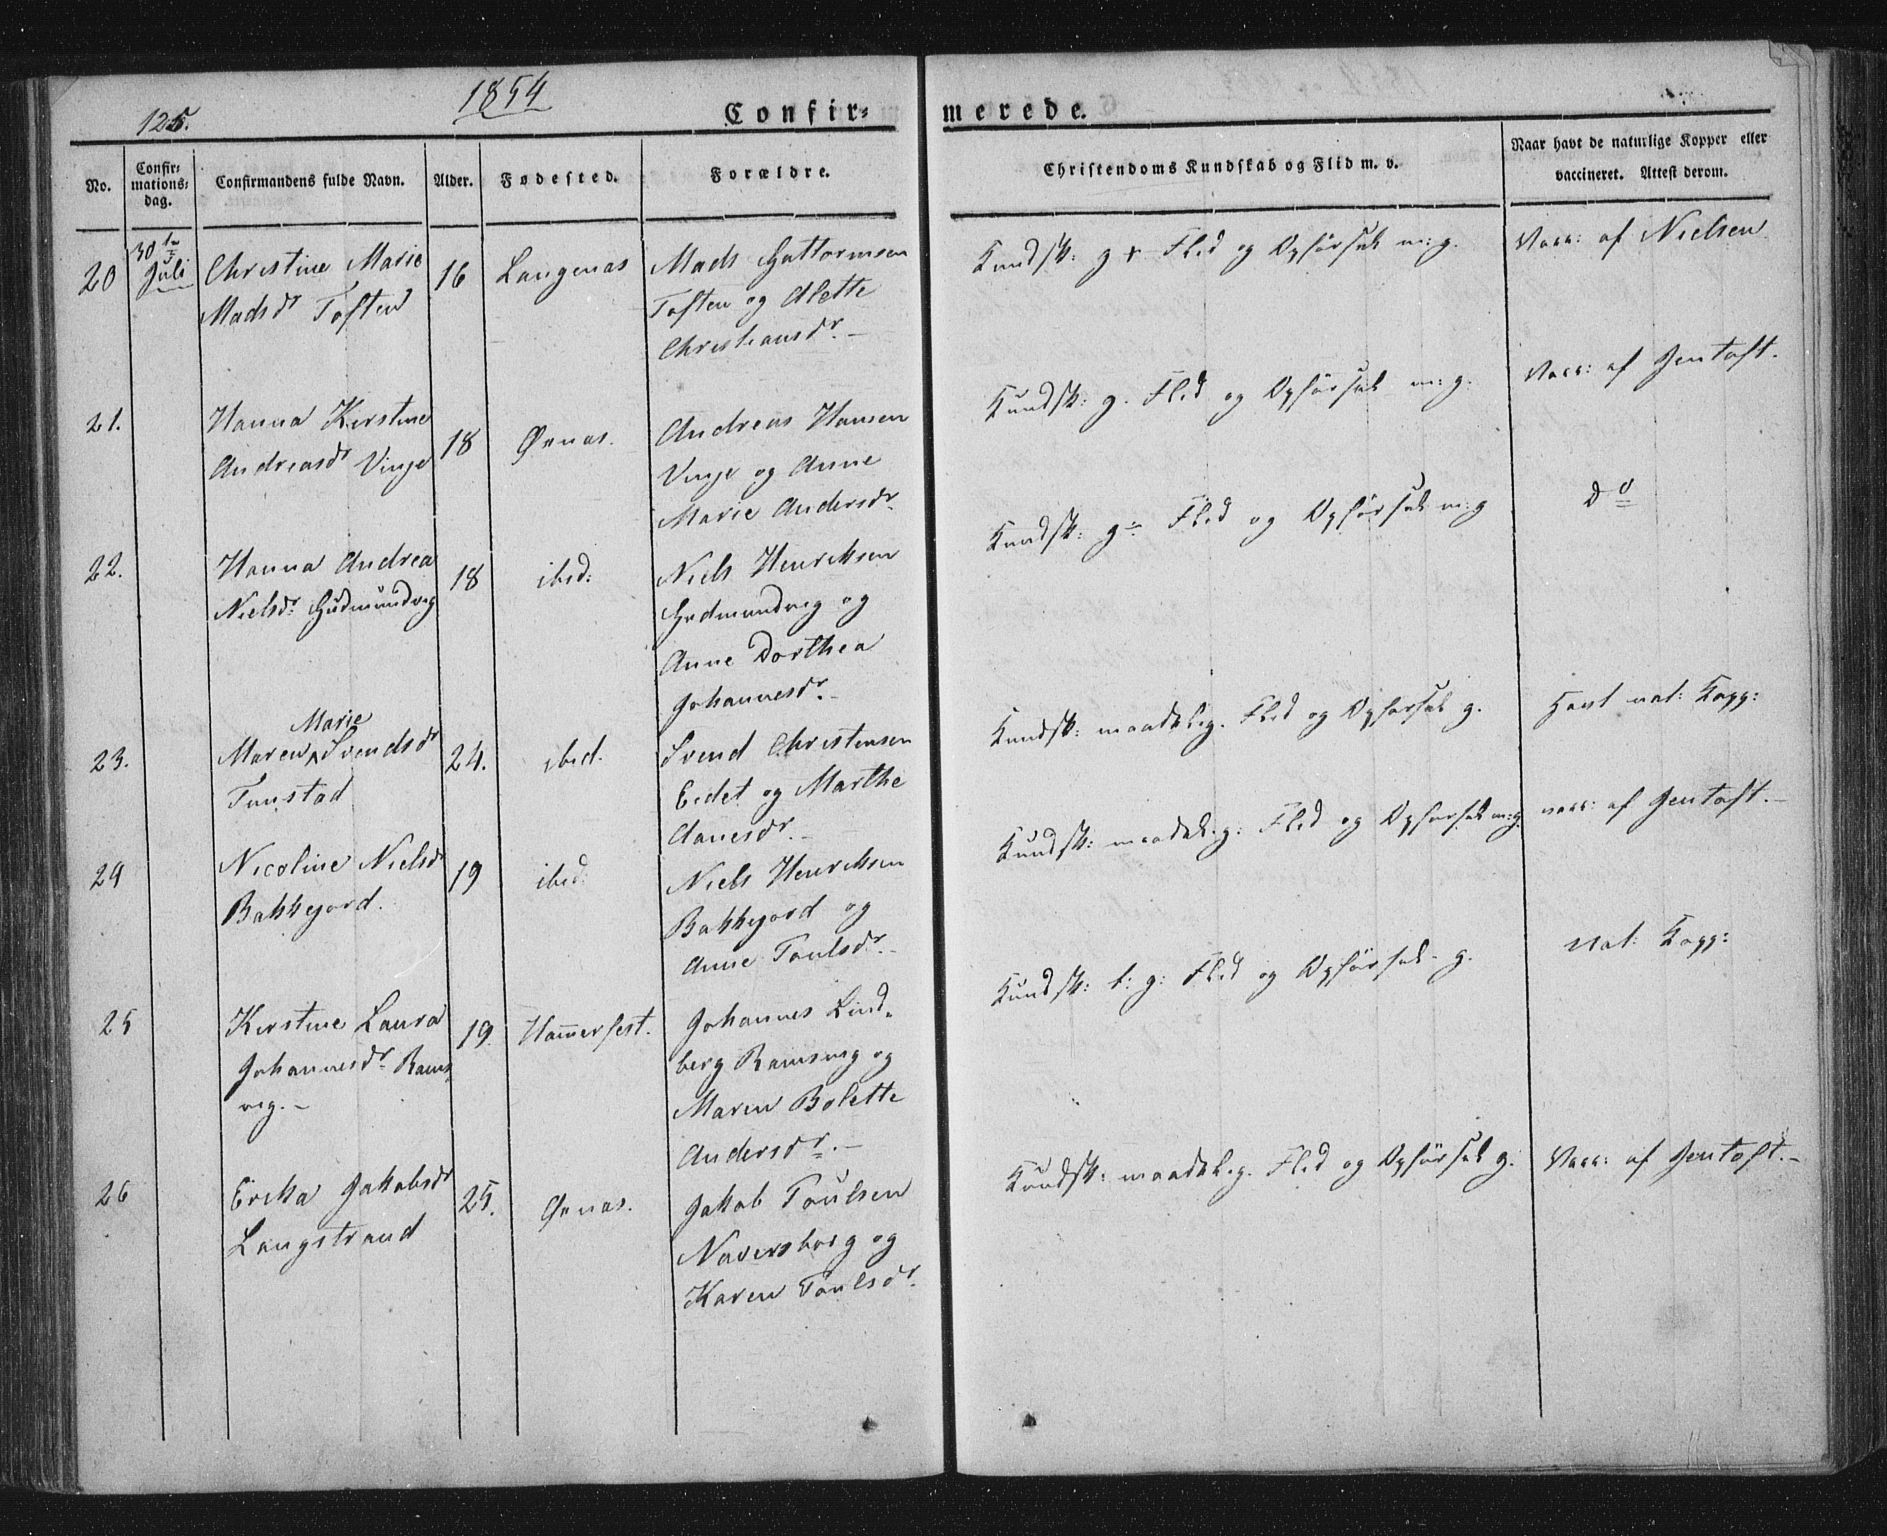 125.
1854
Confir-
merede.
No.
Confir-
mations-
dag.
Confirmandens fulde Navn.
Alder.
Fødested.
Forældre.
Christendoms Kundskab og Flid m. v.
Naar havt de naturlige Kopper eller
vaccineret. Attest derom.
20
30te
Juli
Christine Marie
Madsdr Toften
16
Langenæs
Mads Guttormsen
Toften og Alette
Christiansdr. –
Kundsk: g + Flid og Opførsel m: g.
Vacc: af Nielsen
21.
Hanna Kirstine
Andreasdr Vinje
18
Øxnæs.
Andreas Hansen
Vinje og Anne
Marie Andersdr.
Kundsk: g. Flid og Opførsel m: g.
Vacc: af Jentoft.
22.
Hanna Andrea
Nielsdr: Gudmundveg
18
ibid:
Niels Henriksen
Gudmundveg og
Anne Dorthea
Johannesdr. –
Kundsk: g÷ Flid og Opførsel m: g
do
23.
Marie
Maren Svendsdr
Tunstad
24.
ibid.
Svend Christensen
Eidet og Marthe
Aanesdr. –
Kundsk: maadelig. Flid og Opførsel g.
Havt nat: Kopp:
24
Nicoline Nielsdr
Bakkejord.
19
ibid:
Niels Henriksen
Bakkejord og
Anne Poulsdr. –
Kundsk: maadel. g: Flid og Opførsel m: g.
vacc: af Jentoft. –
25
Kirstine Laura
Johannesdr Rams-
veg. –
19.
Hammerfest.
Johannes Lind-
berg Ramsveg og
Maren Bolette
Andersdr. –
Kundsk: t: g: Flid og Opførsel g.
Nat: Kopp:
26
Ericka Jakobsdr
Langstrand
25.
Øxnæs.
Jakob Poulsen
Naversborg og
Karen Poulsdr.
Kundsk: maadelig. Flid og Opførsel g.
Vacc: af Jentoft. –